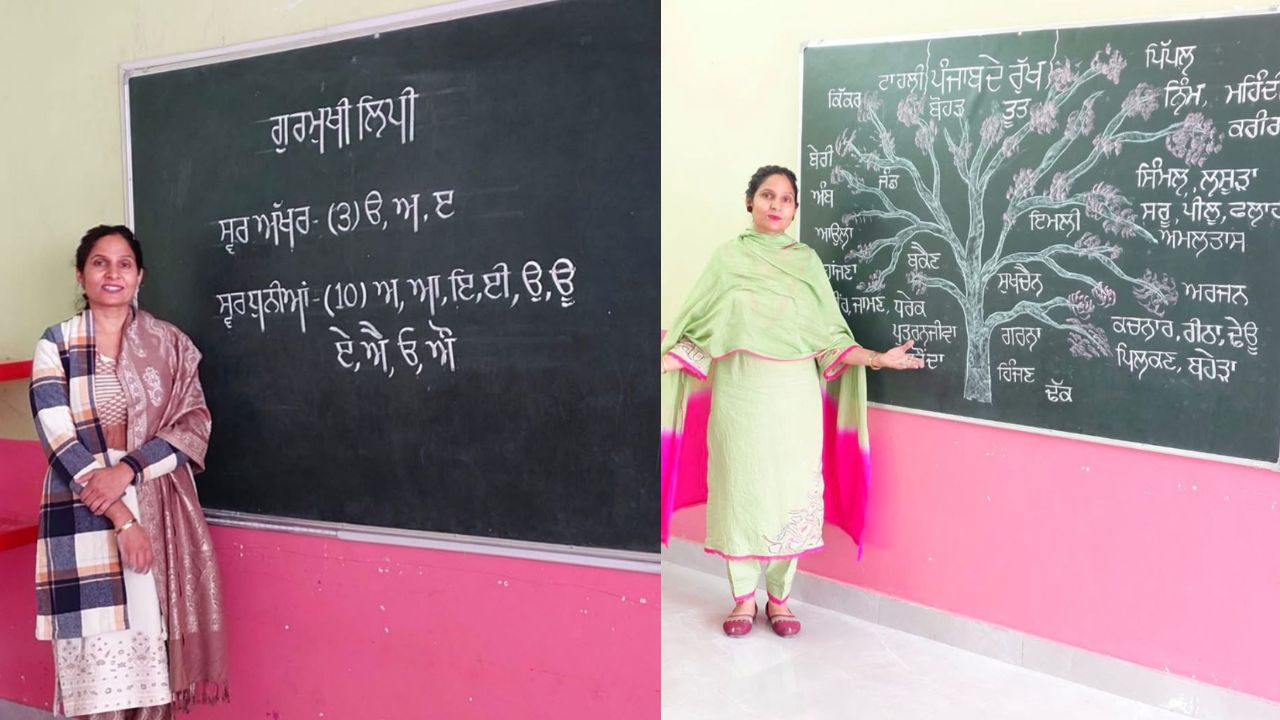 ਗੁਰਮੁਖੀ ਲਿਪੀ
ਸ੍ਵਰ ਅੱਖਰ- (3) ੳ, ਅ, ੲ
ਸ੍ਵਰ ਧੁਨੀਆਂ- (10) ਅ, ਆ, ਇ, ਈ, ਉ, ਊ
ਏ, ਐ, ਓ, ਔ
ਪੰਜਾਬ ਦੇ ਰੁੱਖ
ਟਾਹਲੀ
ਕਿੱਕਰ
ਬੋਹੜ
ਤੂਤ
ਬੇਰੀ
ਜੰਡ
ਅੰਬ
ਆਉਲਾ
ਬਕੈਣ
ਜਾਮਣ, ਧਰੇਕ
ਪੁਤਰਨਜੀਵਾ
ਪਿੱਪਲ਼
ਨਿੰਮ, ਮਹਿੰਦੀ
ਕਰੀਰ
ਸਿੰਮਲ਼, ਲਸੂੜਾ
ਸਰੂ, ਪੀਲੂ, ਫਲ੍ਹਾਰ
ਅਮਲਤਾਸ
ਇਮਲੀ
ਸੁਖਚੈਨ
ਅਰਜਨ
ਗਰਨਾ
ਕਚਨਾਰ, ਰੀਠਾ, ਢੇਊ
ਪਿਲਕਣ, ਬਹੇੜਾ
ਹਿੰਜਣ
ਢੱਕ